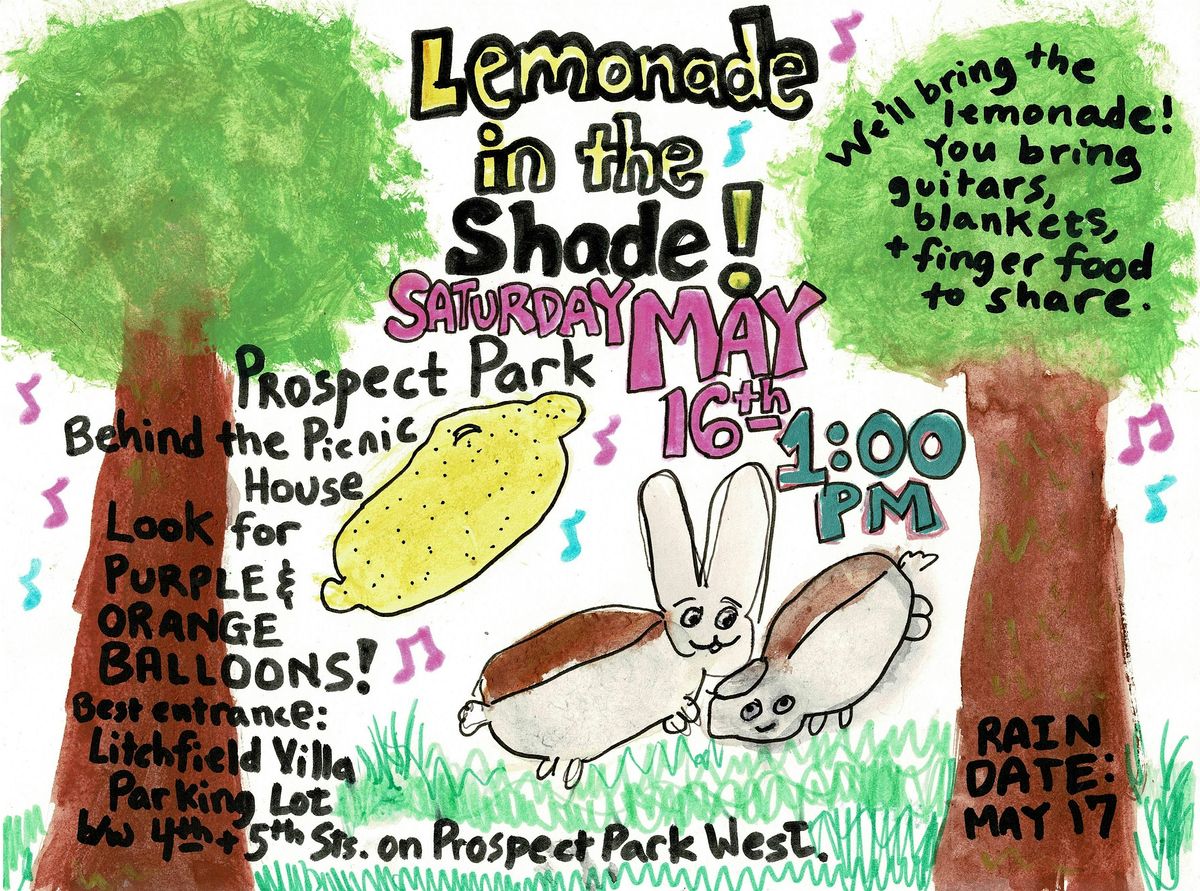 Lemonade
in the
Shade!
SATURDAY MAY
16th
1:00
PM
We'll bring the
lemonade!
You bring
guitars,
blankets,
+ finger food
to share.
Prospect Park
Behind the Picnic
House
Look for
PURPLE &
ORANGE
BALLOONS!
Best entrance:
Litchfield Villa
Parking Lot
b/w 4th + 5th Sts. on Prospect Park West.
RAIN
DATE:
MAY 17